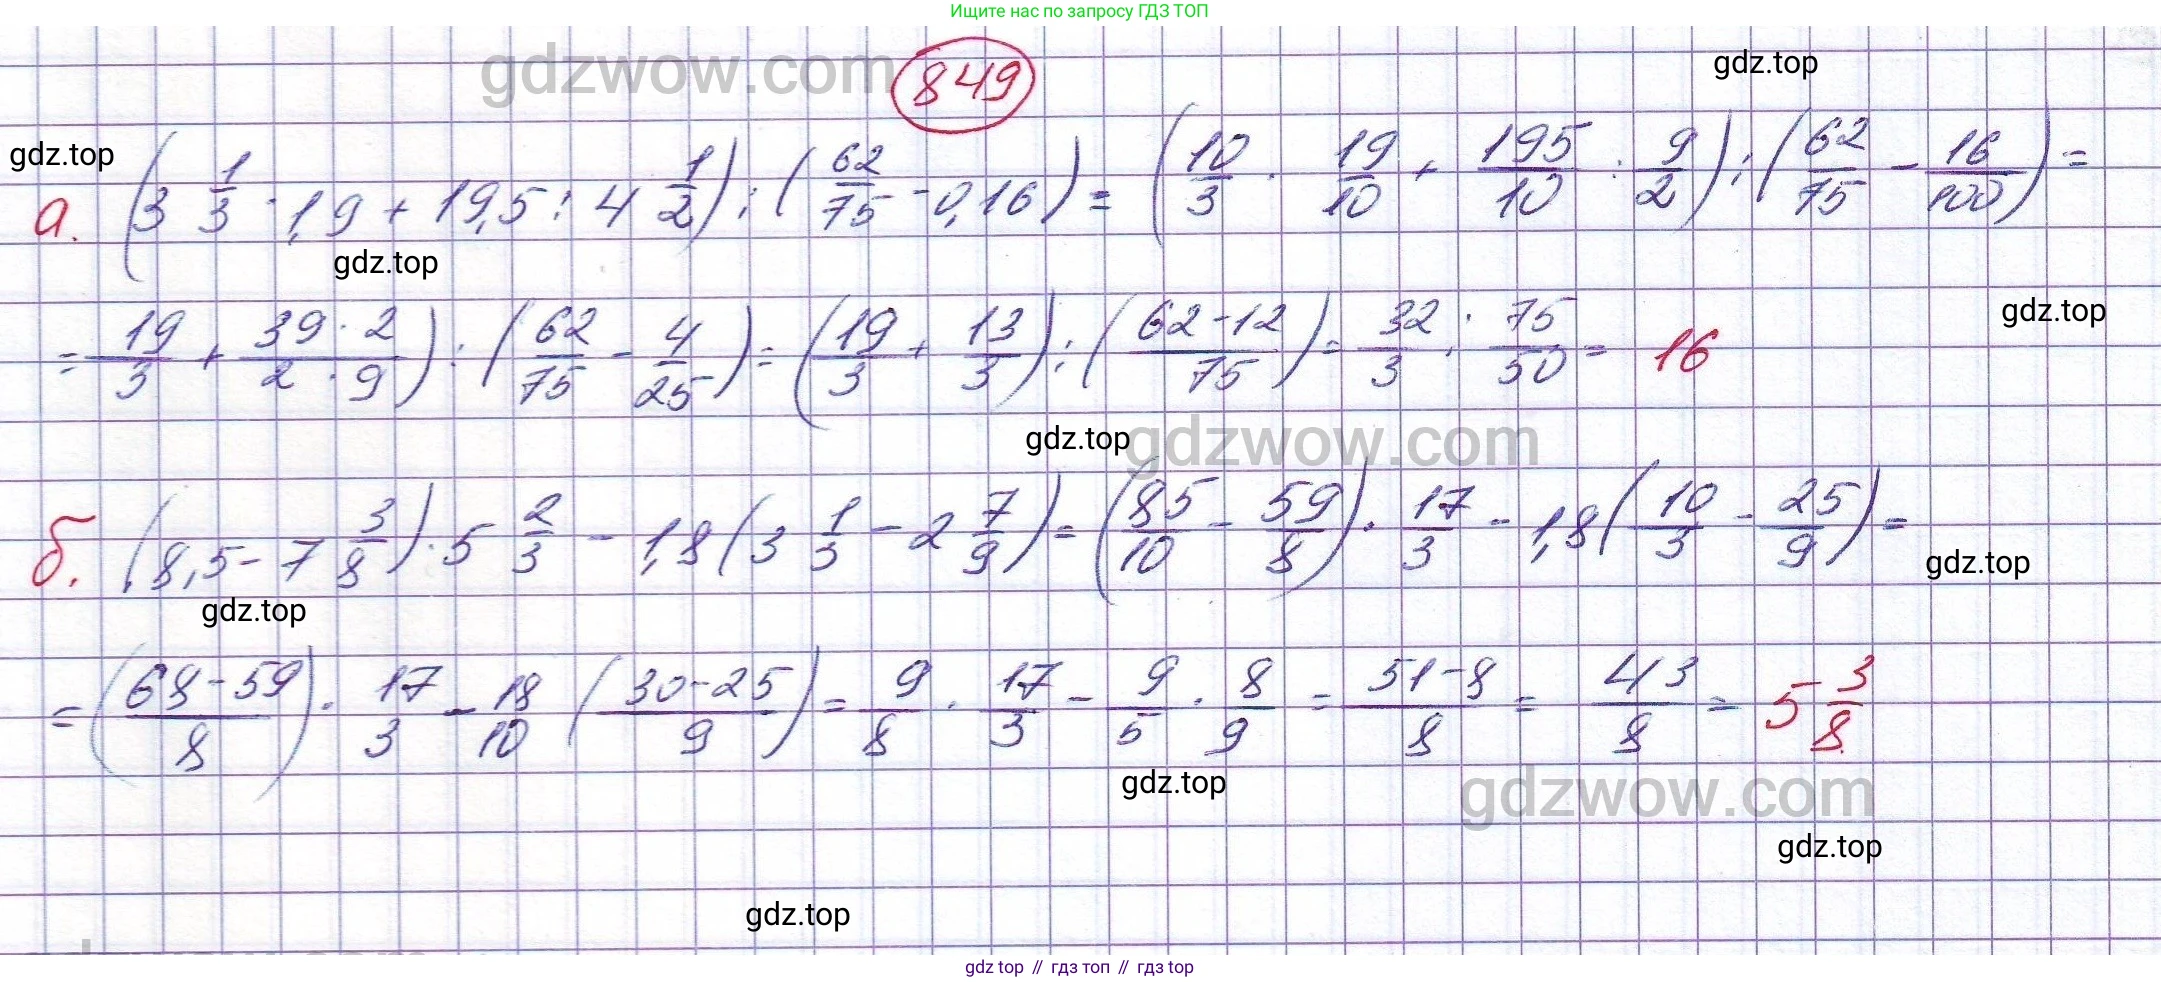 Ищите нас по запросу ГДЗ ТОП
gdzwow.com
849
gdz.top
gdz.top
а. (3 1/3 · 1,9 + 19,5 : 4 1/2) : (62/75 - 0,16) = (10/3 · 19/10 + 195/10 : 9/2) : (62/75 - 16/100) =
gdz.top
gdz.top
= 19/3 + (39·2)/(2·9)) : (62/75 - 4/25) = (19/3 + 13/3) : ((62-12)/75) = 32/3 · 75/50 = 16
gdz.top
gdzwow.com
б. (8,5 - 7 3/8) · 5 2/3 - 1,8 (3 1/3 - 2 7/9) = (85/10 - 59/8) · 17/3 - 1,8 (10/3 - 25/9) =
gdz.top
gdz.top
= ((68-59)/8) · 17/3 - 18/10 ((30-25)/9) = 9/8 · 17/3 - 9/5 · 8/9 = (51-8)/8 = 43/8 = 5 3/8
gdz.top
gdzwow.com
gdz.top
gdz.top
gdz top // гдз топ // гдз top